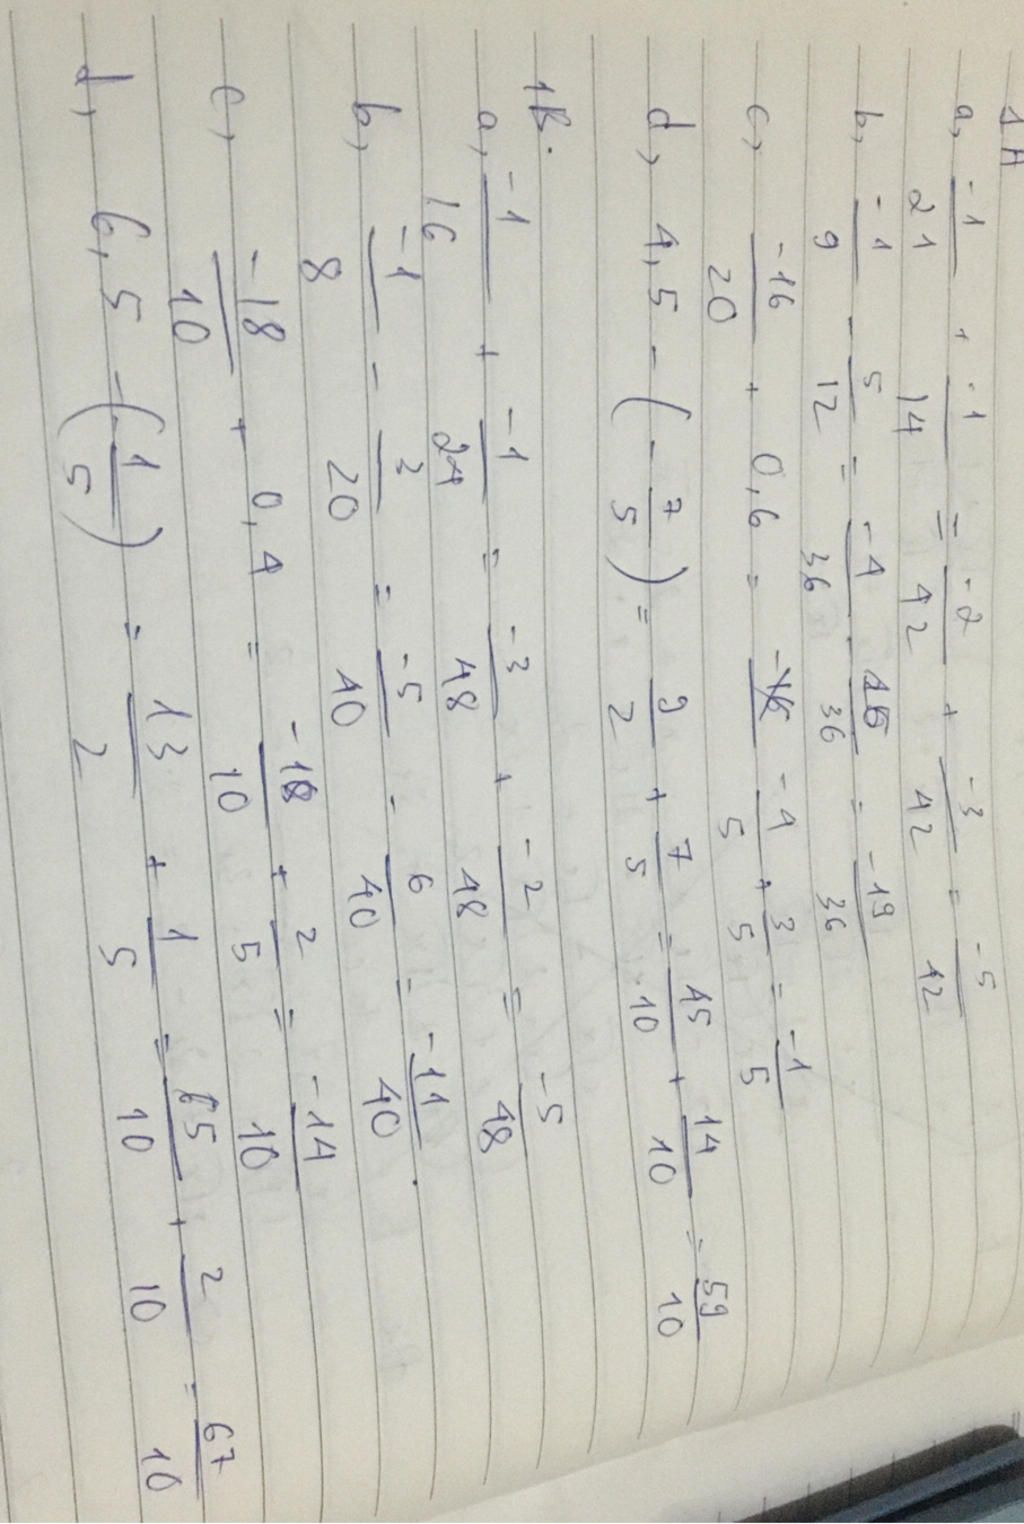 1A
a, -1/21 + -1/14 = -2/42 + -3/42 = -5/42
b, -1/9 - 5/12 = -4/36 - 15/36 = -19/36
c, -16/20 + 0,6 = -4/5 + 3/5 = -1/5
d, 4,5 - (-7/5) = 9/2 + 7/5 = 45/10 + 14/10 = 59/10
1B.
a, -1/16 + -1/24 = -3/48 + -2/48 = -5/48
b, -1/8 - 3/20 = -5/40 - 6/40 = -11/40.
c, -18/10 + 0,4 = -18/10 + 2/5 = -14/10
d, 6,5 - (-1/5) = 13/2 + 1/5 = 65/10 + 2/10 = 67/10